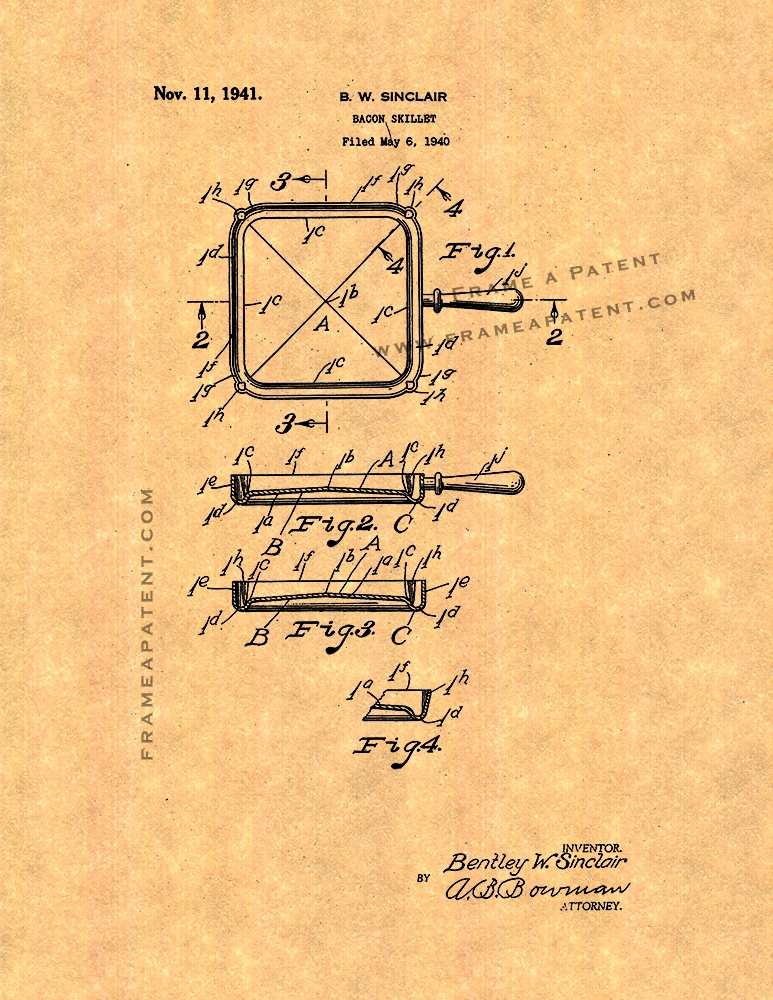 Nov. 11, 1941.
B. W. SINCLAIR
BACON SKILLET
Filed May 6, 1940
3
1h 1g 1f 1g 1h
4
1d 1c 4 Fig.1.
1j
FRAME A PATENT
1c 1b 1c
A
WWW.FRAMEAPATENT.COM
2 2
1f 1c 1d
1g 1g
1h 1h
3
1c 1f 1b A 1c 1h 1j
1e
1d 1a Fig.2. C 1d
B
1h 1c 1f 1b A 1a 1c 1h
1e 1e
1d B Fig.3. C 1d
1f
1a 1h
1d
Fig.4.
FRAMEAPATENT.COM
INVENTOR.
Bentley W. Sinclair
BY A.B.Bowman
ATTORNEY.